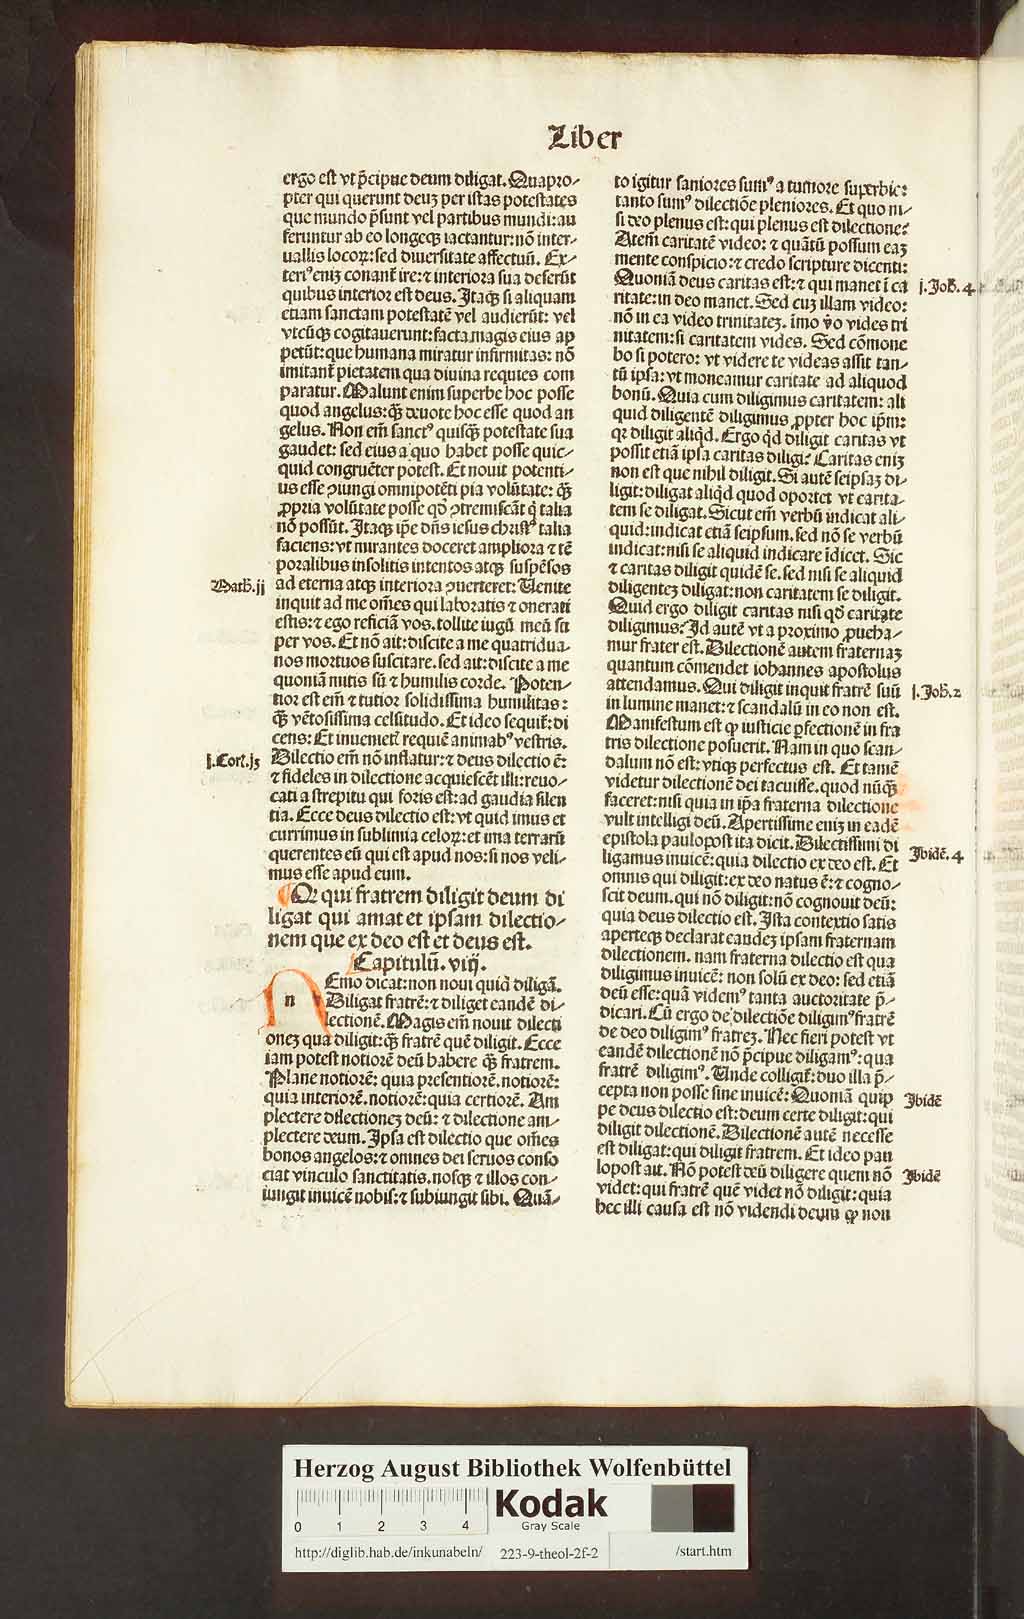 Liber
ergo est vt p̃cipue deum diligat. Quapro-
pter qui querunt deuꝫ per istas potestates
que mundo p̃sunt vel partibus mundi: au
feruntur ab eo longeqꝫ iactantur: nõ inter-
uallis locoꝝ: sed diuersitate affectuũ. Ex-
teriꝰ eniꝫ conant᷑ ire: ⁊ interiora sua deserũt
quibus interior est deus. Itaqꝫ si aliquam
etiam sanctam potestatẽ vel audierũt: vel
vtcũqꝫ cogitauerunt: facta magis eius ap
petũt: que humana miratur infirmitas: nõ
imitant᷑ pietatem qua diuina requies com
paratur. Malunt enim superbe hoc posse
quod angelus: qꝫ̃ deuote hoc esse quod an
gelus. Non em̃ sanctꝰ quisqꝫ̃ potestate sua
gaudet: sed eius a quo habet posse quic-
quid congruẽter potest. Et nouit potenti-
us esse ↄiungi omnipotẽti pia volũtate: qꝫ̃
ꝓpria volũtate posse qð ↄtremiscãt q̇ talia
nõ possũt. Itaqꝫ ip̃e dñs iesus christꝰ talia
faciens: vt mirantes doceret ampliora ⁊ tẽ
poralibus insolitis intentos atqꝫ suspẽsos
Math̃. ij
ad eterna atqꝫ interiora ↄuerteret: Uenite
inquit ad me om̃es qui laboratis ⁊ onerati
estis: ⁊ ego reficiã vos. tollite iugũ meũ su
per vos. Et nõ ait: discite a me quatridua-
nos mortuos suscitare. sed ait: discite a me
quoniã mitis sũ ⁊ humilis corde. Poten-
tior est em̃ ⁊ tutior solidissima humilitas:
qꝫ̃ vẽtosissima celsitudo. Et ideo sequit᷑: di
cens: Et inuenietꝭ requiẽ animabꝰ vestris.
j. Cort. jꝫ
Dilectio em̃ nõ inflatur: ⁊ deus dilectio ẽ:
⁊ fideles in dilectione acquiescẽt illi: reuo-
cati a strepitu qui foris est: ad gaudia silen
tia. Ecce deus dilectio est: vt quid imus et
currimus in sublimia celoꝝ: et ima terrarũ
querentes eũ qui est apud nos: si nos veli-
mus esse apud eum.
Qꝛ qui fratrem diligit deum di
ligat qui amat et ipsam dilectio-
nem que ex deo est et deus est.
Capitulũ. viij.
n
Emo dicat: non noui quid diligã.
Diligat fratrẽ: ⁊ diliget eandẽ di-
lectionẽ. Magis em̃ nouit dilecti
oneꝫ qua diligit: qꝫ̃ fratrẽ quẽ diligit. Ecce
iam potest notiorẽ deũ habere qꝫ̃ fratrem.
Plane notiorẽ: quia presentiorẽ. notiorẽ:
quia interiorẽ. notiorẽ: quia certiorẽ. Am
plectere dilectioneꝫ deũ: ⁊ dilectione am-
plectere deum. Ipsa est dilectio que om̃es
bonos angelos: ⁊ omnes dei seruos conso
ciat vinculo sanctitatis. nosqꝫ ⁊ illos con-
iungit inuicẽ nobis: ⁊ subiungit sibi. Quã-
to igitur saniores sumꝰ a tumore superbie:
tanto sumꝰ dilectiõe pleniores. Et quo ni-
si deo plenus est: qui plenus est dilectione?
At em̃ caritatẽ video: ⁊ quãtũ possum eaꝫ
mente conspicio: ⁊ credo scripture dicenti:
Quoniã deus caritas est: ⁊ qui manet ĩ ca
j. Joh̃. 4
ritate: in deo manet. Sed cuꝫ illam video:
nõ in ea video trinitateꝫ. ĩmo ṽo vides tri
nitatem: si caritatem vides. Sed cõmone
bo si potero: vt videre te videas assit tan-
tũ ipsa: vt moneamur caritate ad aliquod
bonũ. Quia cum diligimus caritatem: ali
quid diligentẽ diligimus ꝓpter hoc ip̃m:
qꝛ diligit aliq̇d. Ergo q̇d diligit caritas vt
possit etiã ipsa caritas diligi? Caritas eniꝫ
non est que nihil diligit. Si autẽ seipsaꝫ di-
ligit: diligat aliq̇d quod oportet vt carita-
tem se diligat. Sicut em̃ verbũ indicat ali-
quid: indicat etiã seipsum. sed nõ se verbũ
indicat: nisi se aliquid indicare ĩdicet. Sic
⁊ caritas diligit quidẽ se. sed nisi se aliquid
diligenteꝫ diligat: non caritatem se diligit.
Quid ergo diligit caritas nisi qð caritate
diligimus? Id autẽ vt a proximo ꝓueha-
mur frater est. Dilectionẽ autem fraternaꝫ
quantum cõmendet iohannes apostolus
attendamus. Qui diligit inquit fratrẽ suũ
j. Joh̃. 2
in lumine manet: ⁊ scandalũ in eo non est.
Manifestum est ꝙ iusticie ꝑfectionẽ in fra
tris dilectione posuerit. Nam in quo scan-
dalum nõ est: vtiqꝫ perfectus est. Et tamẽ
videtur dilectionẽ dei tacuisse. quod nũqꝫ̃
faceret: nisi quia in ip̃a fraterna dilectione
vult intelligi deũ. Apertissime eniꝫ in eadẽ
epistola paulopost ita dicit. Dilectissimi di
ligamus inuicẽ: quia dilectio ex deo est. Et
Ibidẽ. 4
omnis qui diligit: ex deo natus ẽ: ⁊ cogno-
scit deum. qui nõ diligit: nõ cognouit deũ:
quia deus dilectio est. Ista contextio satis
aperteqꝫ declarat eandeꝫ ipsam fraternam
dilectionem. nam fraterna dilectio est qua
diligimus inuicẽ: non solũ ex deo: sed etiã
deũ esse: quã videmꝰ tanta auctoritate p̃-
dicari. Cũ ergo de dilectiõe diligimꝰ fratrẽ
de deo diligimꝰ fratreꝫ. Nec fieri potest vt
eandẽ dilectionẽ nõ p̃cipue diligamꝰ: qua
fratrẽ diligimꝰ. Unde colligit᷑: duo illa p̃-
cepta non posse sine inuicẽ: Quoniã quip
Ibidẽ
pe deus dilectio est: deum certe diligit: qui
diligit dilectionẽ. Dilectionẽ autẽ necesse
est diligat: qui diligit fratrem. Et ideo pau
lopost ait. Nõ potest deũ diligere quem nõ
Ibidẽ
videt: qui fratrẽ quẽ videt nõ diligit: quia
hec illi causa est nõ videndi deum ꝙ non
Herzog August Bibliothek Wolfenbüttel
0 1 2 3 4
Kodak
Gray Scale
http://diglib.hab.de/inkunabeln/ 223-9-theol-2f-2 /start.htm